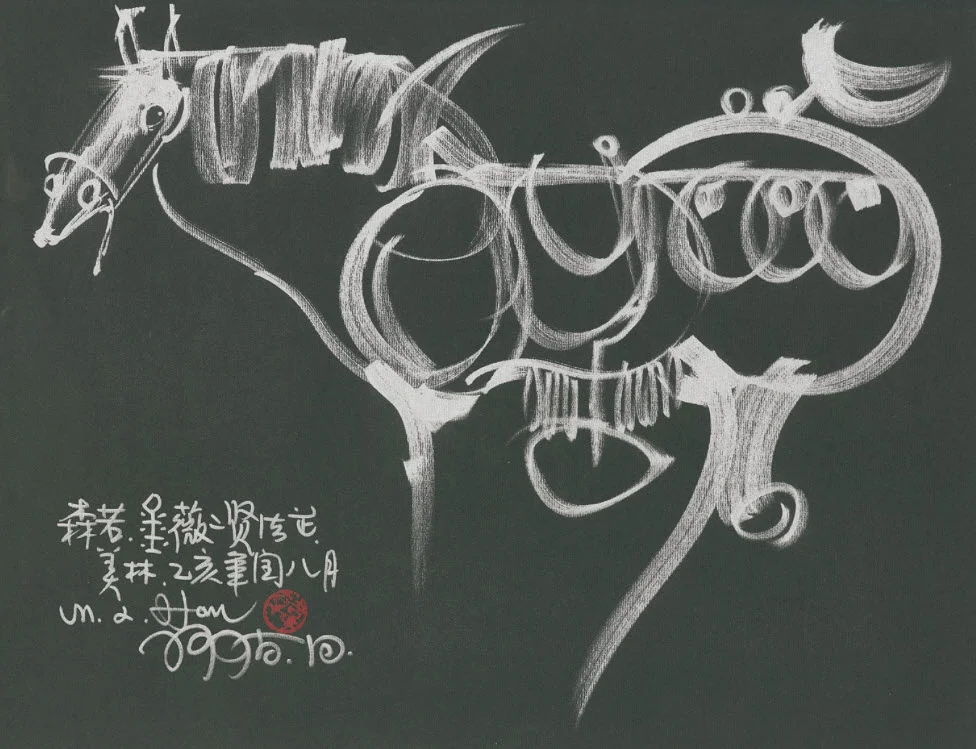 森若.薇二贤
美林.乙亥年闰八月
m. L. Han
1995.10.